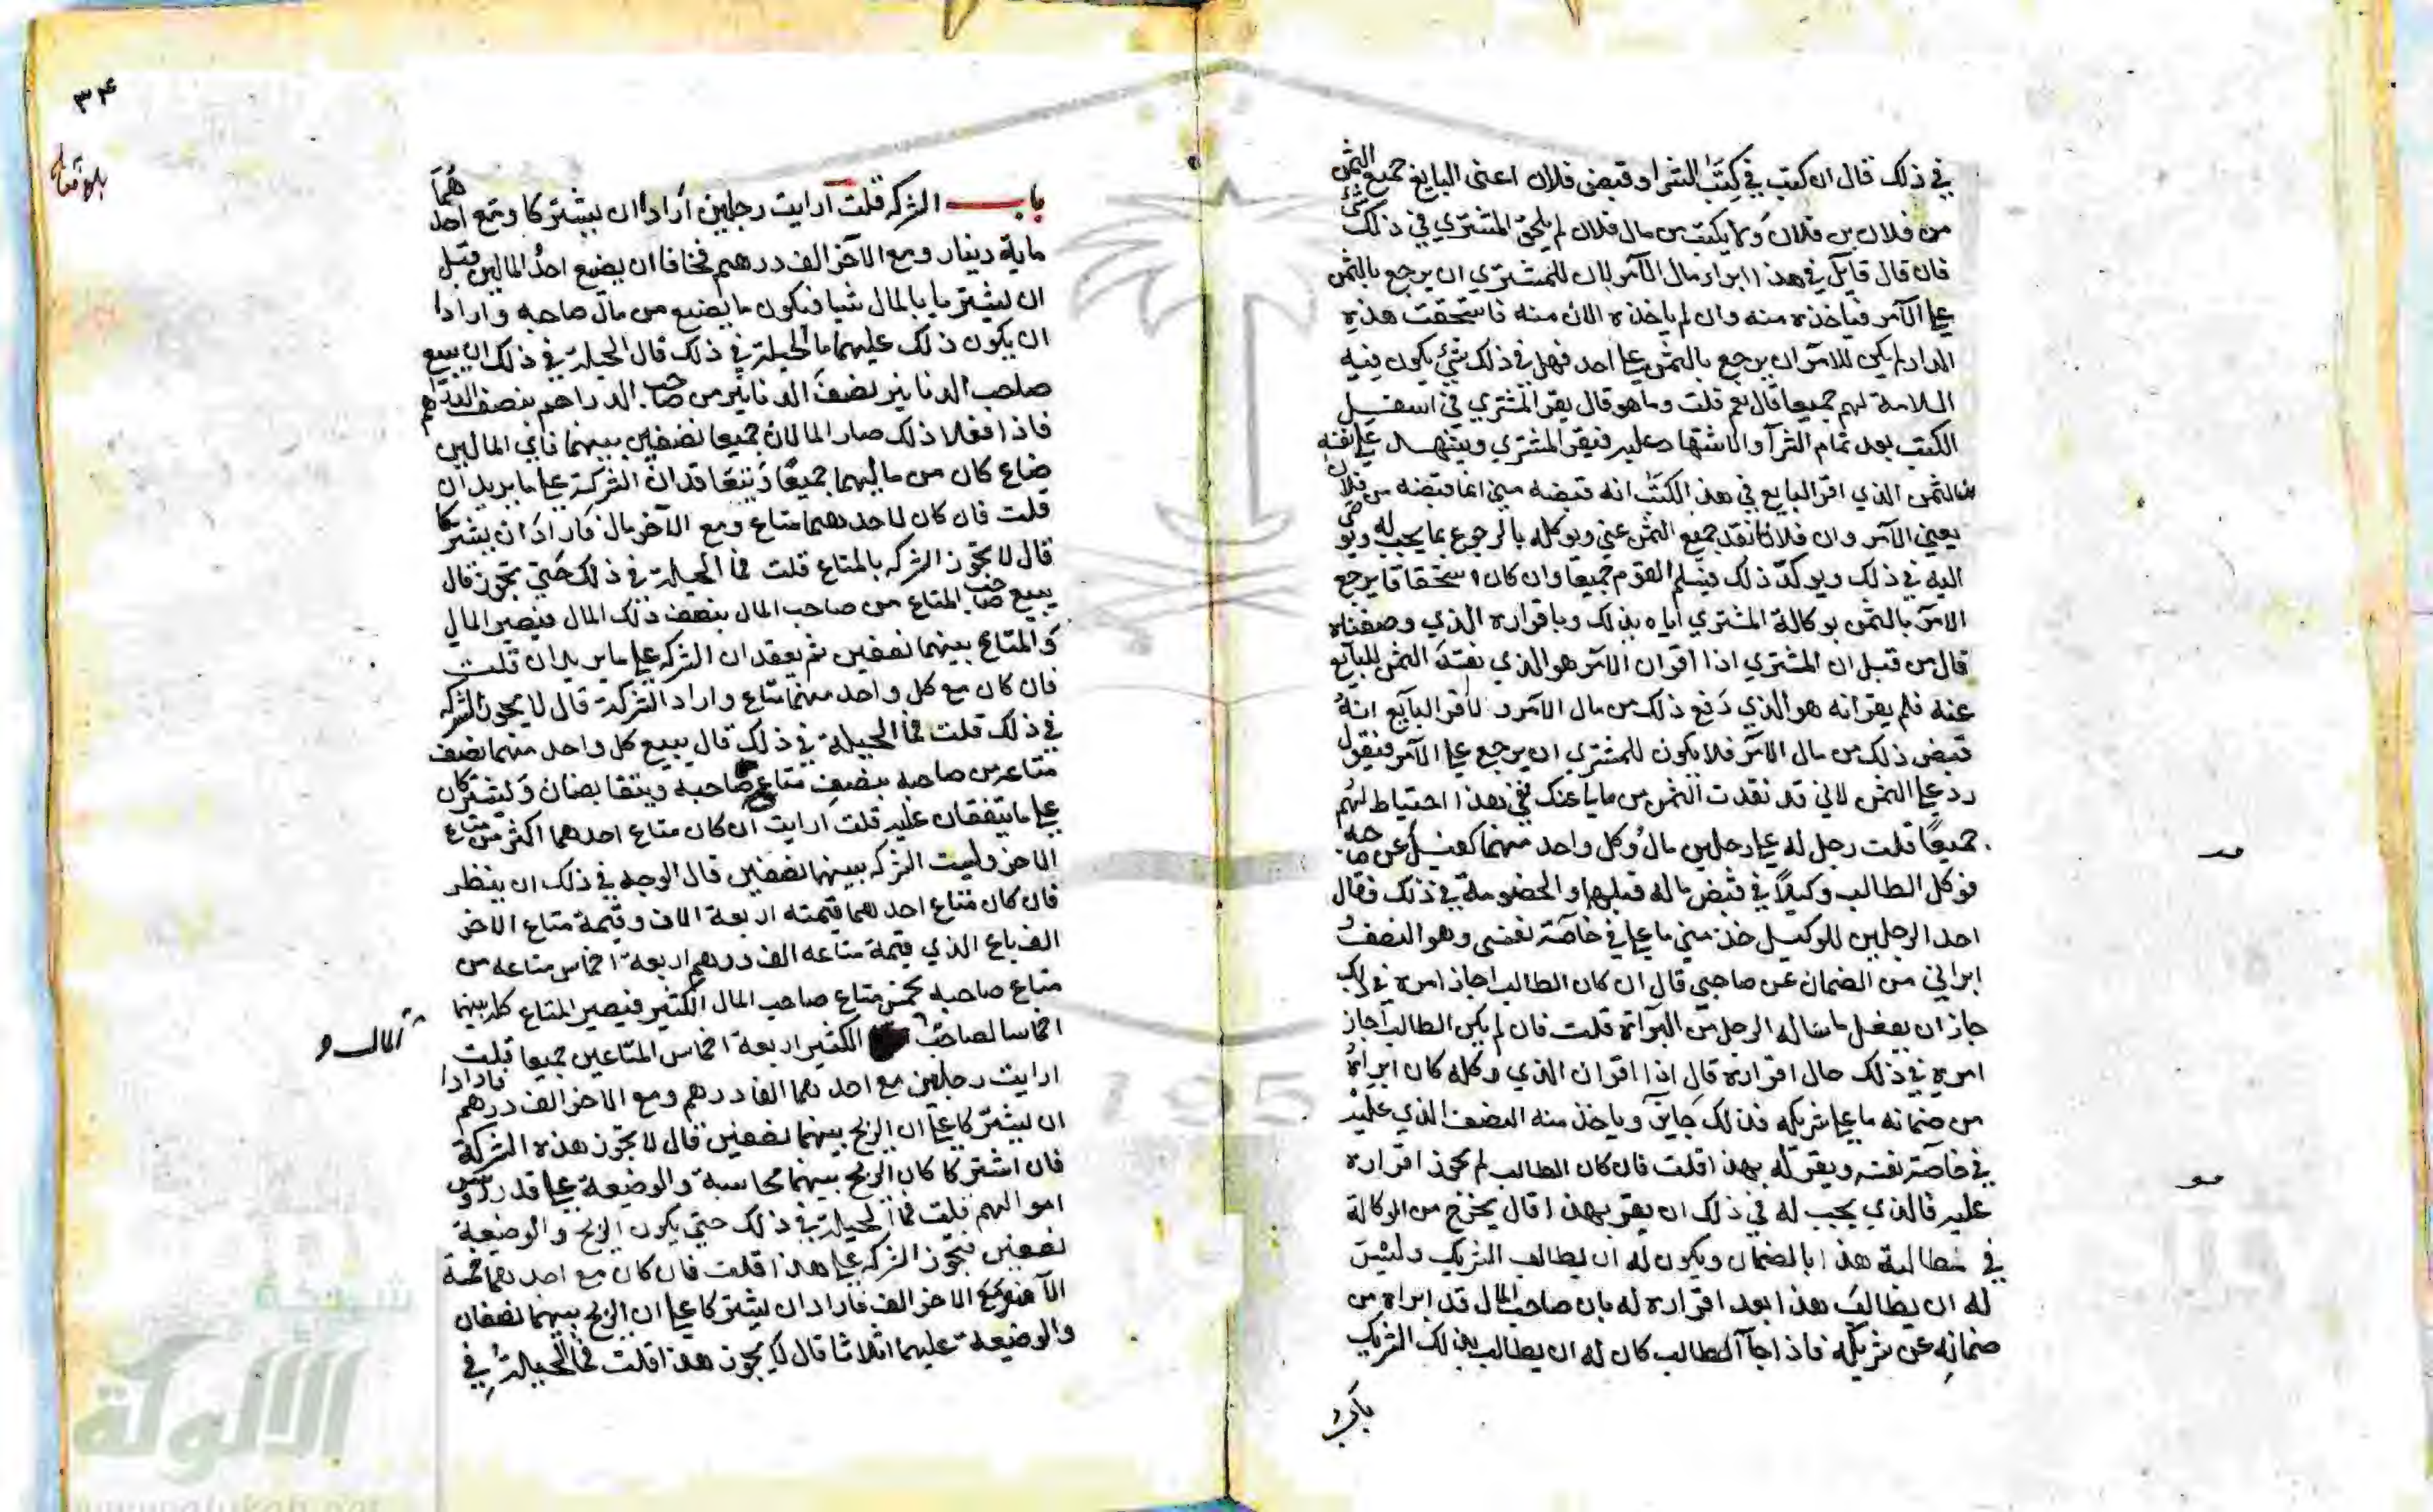 في ذلك قال ان كتب في كتب الشرا وقبض فلان اعنى البايع جميع الثمن
من فلان بن فلان ولا يكتب من مال فلان لم يلحق المشتري في ذلك شئ
فان قال قايل في هذا ابراء مال الآمر لان للمشتري ان يرجع بالثمن
على الآمر فياخذه منه وان لم ياخذه الان منه فاستحقت هذه
الدار لم يكن للآمر ان يرجع بالثمن على احد فهل في ذلك شئ يكون فيه
السلامة لهم جميعا قال نعم قلت وما هو قال يقر المشتري في اسفل
الكتب بعد تمام الشرآ والاشهاد عليه فيقر المشتري ويشهد على نفسه
الثمن الذي اقر البايع في هذا الكتب انه قبضه مني انما قبضه من فلان
يعني الآمر وان فلانا نقد جميع الثمن عني ويوكله بالرجوع بما يجب له
اليه في ذلك ويوكد ذلك فيسلم القوم جميعا وان كان استحقاقا يرجع
الامر بالثمن بوكالة المشتري اياه بذلك وباقراره الذي وصفناه
قال من قبل ان المشتري اذا اقر ان الآمر هو الذي نقد الثمن للبايع
عنه فلم يقر انه هو الذي دفع ذلك من مال الآمر ولا قر البايع انه
قبض ذلك من مال الآمر فلا يكون للمشتري ان يرجع على الآمر فيقول
رد علي الثمن لاني قد نقدت الثمن من مالي عنك ففي هذا احتياط لهم
جميعًا قلت رجل له على رجلين مال وكل واحد منهما كفيل عن صاحبه
فوكل الطالب وكيلًا في قبض ماله قبلهما والخصومة في ذلك فقال
احد الرجلين للوكيل خذ مني ما علي في خاصة نفسي وهو النصف
ابراني من الضمان عن صاحبي قال ان كان الطالب اجاز امره في ذلك
جاز ان يفعل ما ساله الرجل من البرآة قلت فان لم يكن الطالب اجاز
امره في ذلك حال اقراره قال اذا اقر ان الذي وكله كان ابراه
من ضمانه ما على شريكه فذلك جايز وياخذ منه النصف الذي عليه
في خاصة نفسه ويقر له بهذا قلت فان كان الطالب لم يجوز اقراره
عليه فالذي يجب له في ذلك ان يقر بهذا قال يخرج من الوكالة
في مطالبة هذا بالضمان ويكون له ان يطالب الشريك وليس
له ان يطالب هذا بعد اقراره له بان صاحب المال قد ابراه من
ضمانه عن شريكه فاذا جآ الطالب كان له ان يطالب بذلك الشريك
باب
٣٤
باب الشركه قلت ارايت رجلين ارادا ان يشتركا ومع احدهما
ماية دينار ومع الآخر الف درهم فخافا ان يضيع احد المالين قبل
ان يشتريا بالمال شيا فيكون ما يضيع من مال صاحبه وارادا
ان يكون ذلك عليهما ما الحيلة في ذلك قال الحيلة في ذلك ان يبيع
صاحب الدنانير نصف الدنانير من صاحب الدراهم بنصف الدراهم
فاذا فعلا ذلك صار المالان جميعا نصفين بينهما فاي المالين
ضاع كان من ماليهما جميعًا ويتعاقدان الشركة على ما يريدان
قلت فان كان لاحدهما متاع ومع الآخر مال فارادا ان يشتركا
قال لا تجوز الشركه بالمتاع قلت فما الحيلة في ذلك حتي تجوز قال
يبيع صاحب المتاع من صاحب المال بنصف ذلك المال فيصير المال
والمتاع بينهما نصفين ثم يعقدان الشركه على ما يريدان قلت
فان كان مع كل واحد منهما متاع واراد الشركة قال لا يجوز الشركه
في ذلك قلت فما الحيلة في ذلك قال يبيع كل واحد منهما نصف
متاعه من صاحبه بنصف متاع صاحبه ويتقابضان ويشتركان
على ما يتفقان عليه قلت ارايت ان كان متاع احدهما اكثر من متاع
الاخر وليست الشركه بينهما نصفين قال الوجه في ذلك ان ينظر
فان كان متاع احدهما قيمته اربعة الاف وقيمة متاع الاخر
الف باع الذي قيمة متاعه الف درهم اربعة اخماس متاعه من
متاع صاحبه بخمس متاع صاحب المال الكثير فيصير المتاع كله بينهما
اخماسا لصاحب الكثير اربعة اخماس المتاعين جميعا قلت
المال
ارايت رجلين مع احدهما الفا درهم ومع الاخر الف درهم فارادا
ان يشتركا على ان الربح بينهما نصفين قال لا تجوز هذه الشركة
فان اشتركا كان الربح بينهما محاسبة والوضيعة على قدر رووس
اموالهم قلت فما الحيلة في ذلك حتي يكون الربح والوضيعة
نصفين فتجوز الشركه على هذا قلت فان كان مع احدهما خمسة
الآف ومع الاخر الف فاراد ان يشتركا على ان الربح بينهما نصفان
والوضيعة عليهما اثلاثا قال لا يجوز هذا قلت فما الحيلة في
شبكة
الألوكة
www.alukah.net